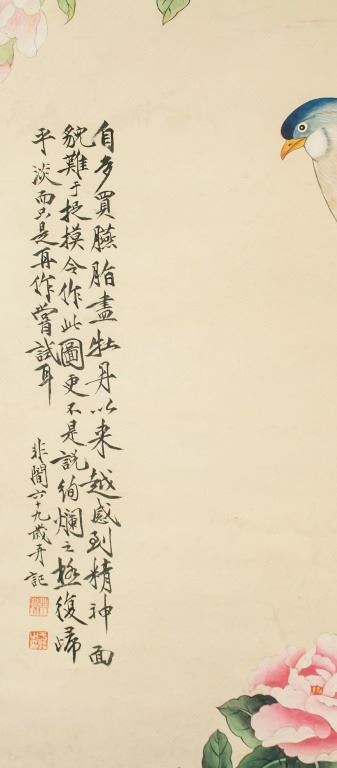 自多買臙脂畫牡丹以來越感到精神面
貌難于捉摸今作此圖更不是說絢爛之極復歸
平淡而只是再作嘗試耳
非闇六十九歲并記